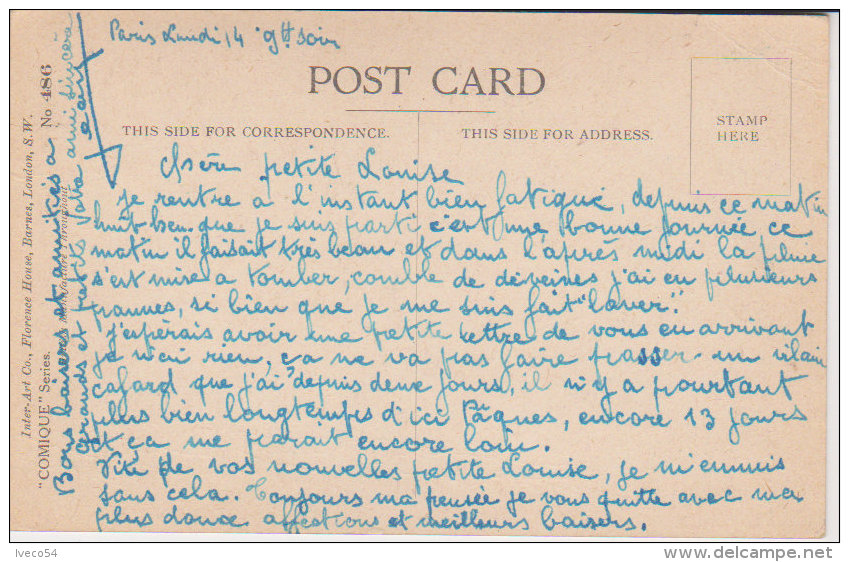 Paris Lundi 14 9h soir
POST CARD
THIS SIDE FOR CORRESPONDENCE.
THIS SIDE FOR ADDRESS.
STAMP
HERE
Chère petite Louise
Je rentre à l'instant bien fatigué, depuis ce matin
huit heu. que je suis parti c'est une bonne journée ce
matin il faisait très beau et dans l'après midi la pluie
s'est mise a tomber, comble de déveines j'ai eu plusieurs
pannes, si bien que je me suis fait "laver".
J'espérais avoir une petite lettre de vous en arrivant
je n'ai rien, ça ne va pas faire passer un vilain
cafard que j'ai depuis deux jours, il n'y a pourtant
plus bien longtemps d'ici Pâques, encore 13 jours
et ça me parait encore loin.
Vite de vos nouvelles petite Louise, je m'ennuis
sans cela. Toujours ma pensée je vous quitte avec mes
plus douce affections et meilleurs baisers.
Bons baisers et amitiés a
grands et petits Votre ami sincère
Inter-Art Co., Florence House, Barnes, London, S.W.
"COMIQUE" Series.
Manufacture Throughout
No 486
Iveco54
delcampe.net